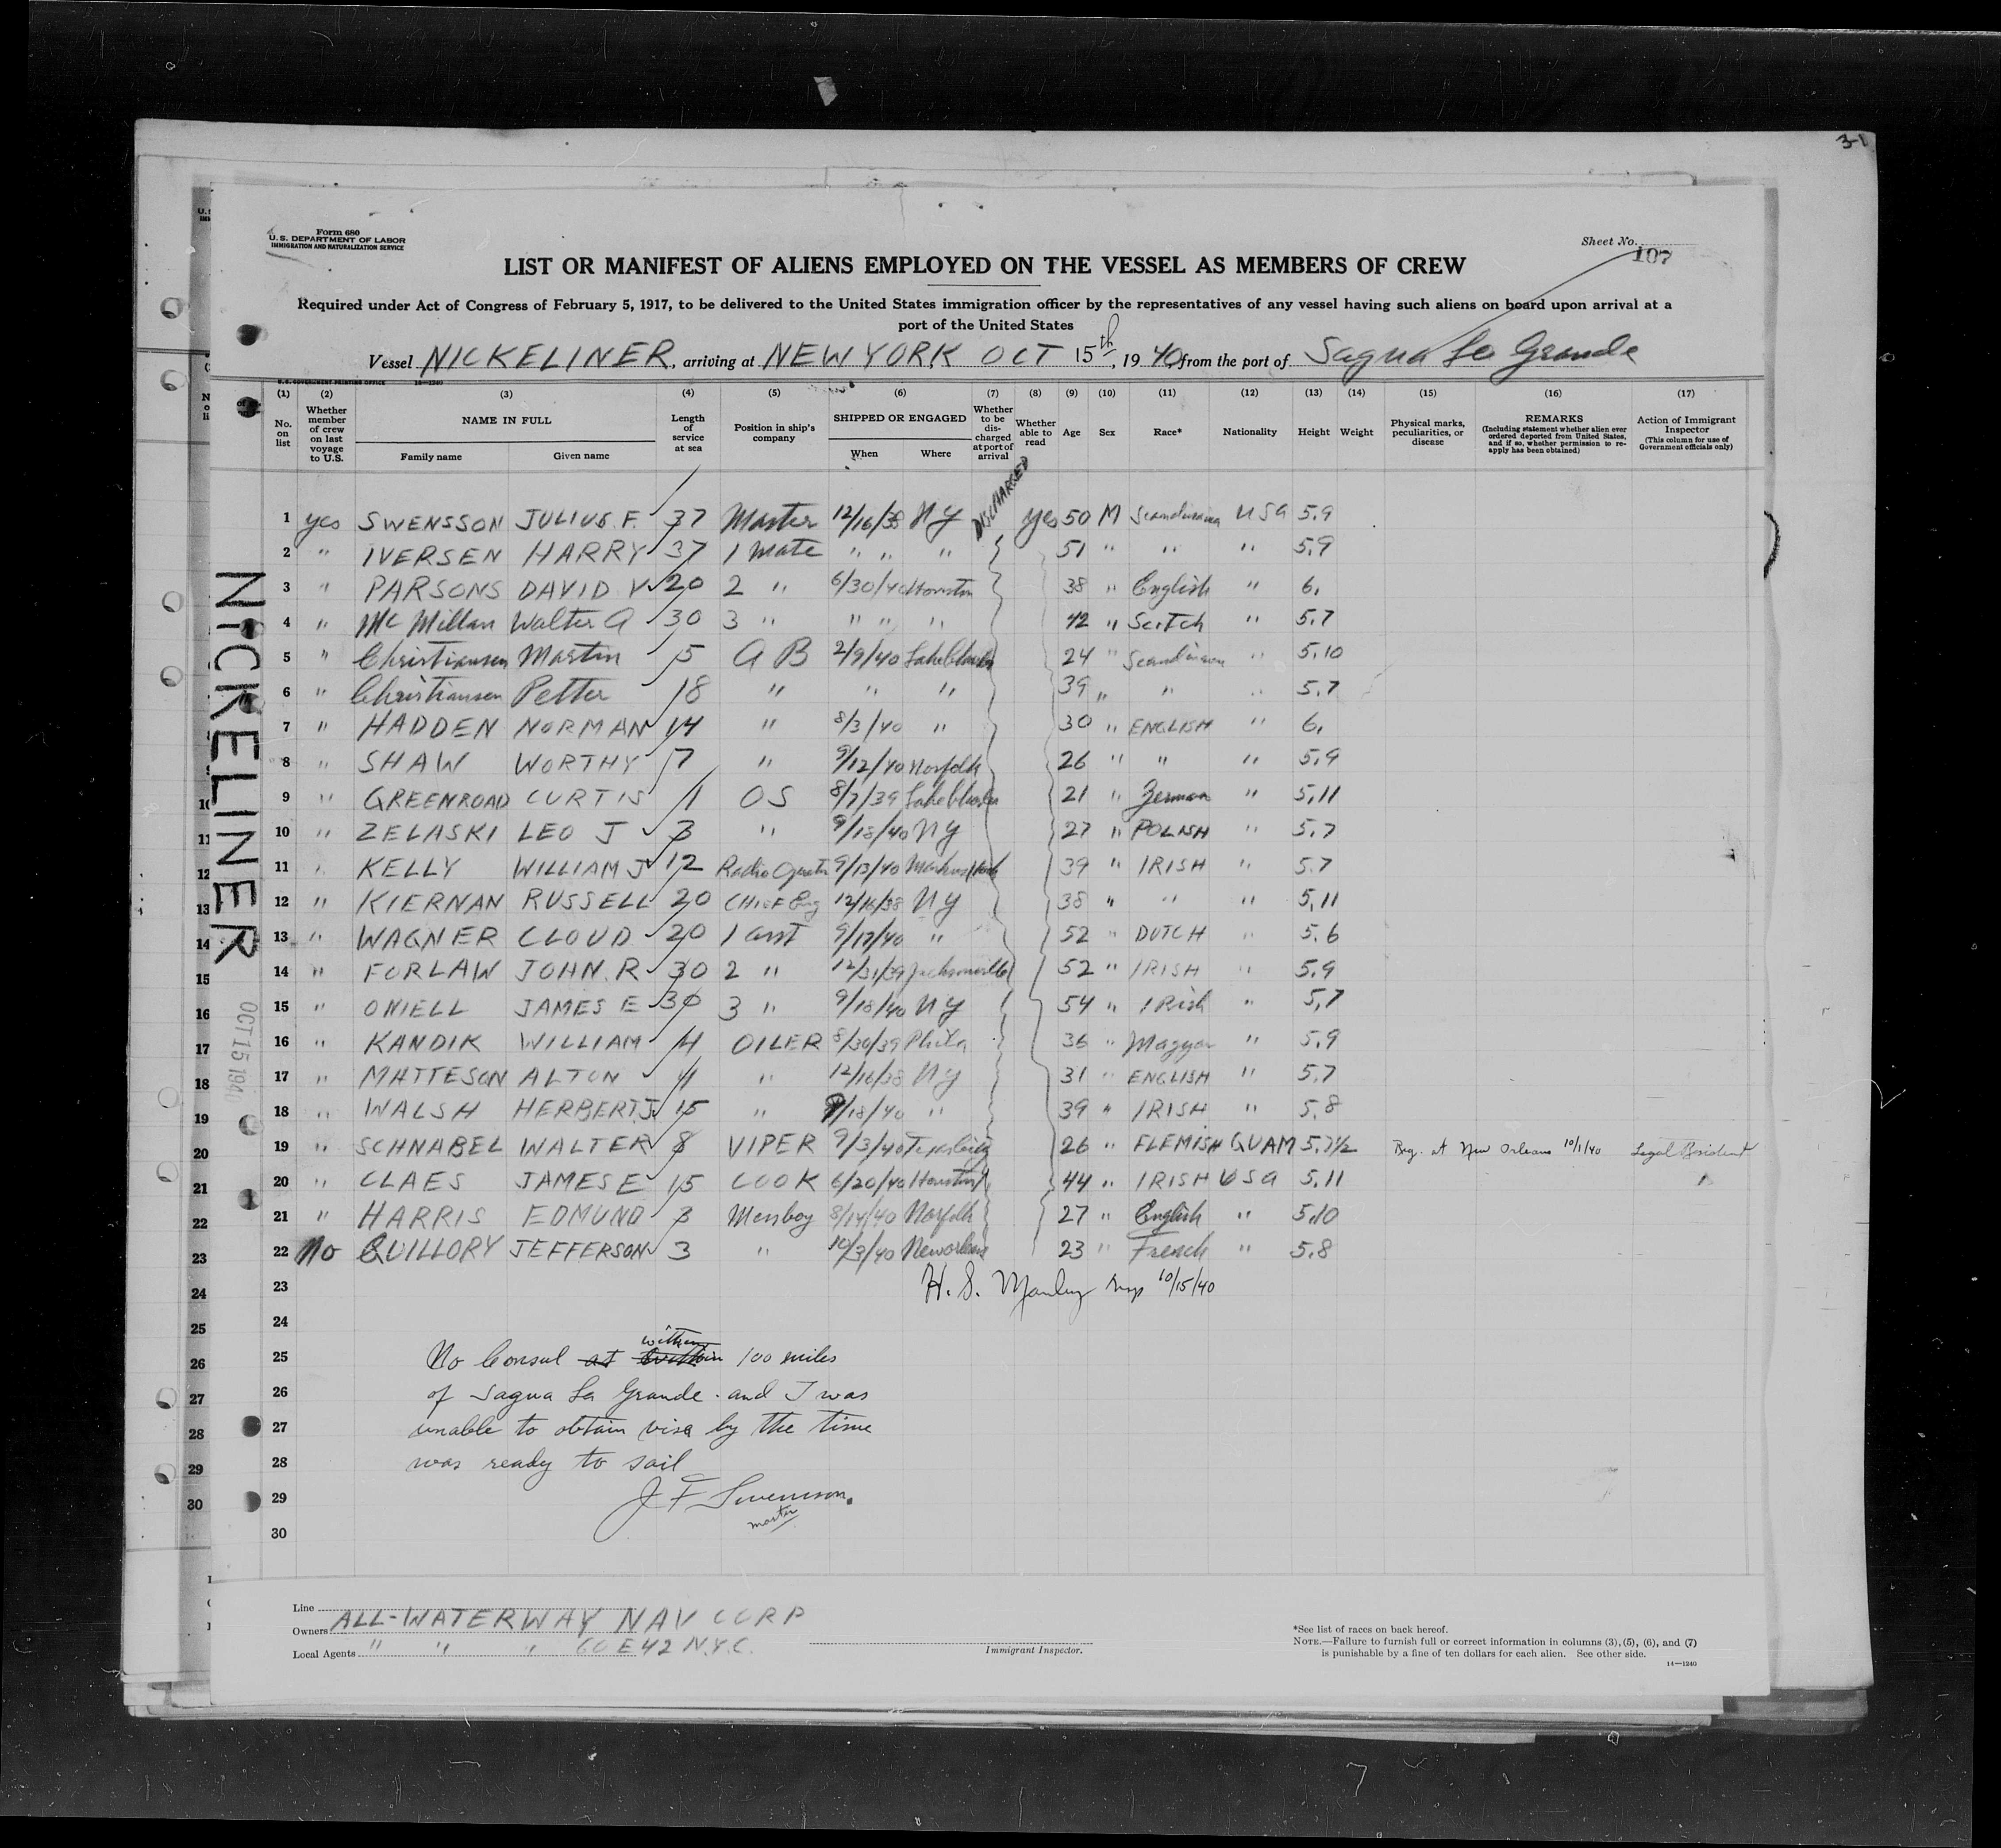 3-1
Form 680
U.S. DEPARTMENT OF LABOR
IMMIGRATION AND NATURALIZATION SERVICE
Sheet No.
107
LIST OR MANIFEST OF ALIENS EMPLOYED ON THE VESSEL AS MEMBERS OF CREW
Required under Act of Congress of February 5, 1917, to be delivered to the United States immigration officer by the representatives of any vessel having such aliens on board upon arrival at a
port of the United States
Vessel NICKELINER, arriving at NEW YORK OCT 15th, 1940 from the port of Sagua La Grande
U.S. GOVERNMENT PRINTING OFFICE 14—1240
(1) (2) (3) (4) (5) (6) (7) (8) (9) (10) (11) (12) (13) (14) (15) (16) (17)
No. on list
Whether member of crew on last voyage to U.S.
NAME IN FULL
Family name Given name
Length of service at sea
Position in ship's company
SHIPPED OR ENGAGED
When Where
Whether to be discharged at port of arrival
Whether able to read
Age Sex Race* Nationality Height Weight
Physical marks, peculiarities, or disease
REMARKS
(Including statement whether alien ever ordered deported from United States, and if so, whether permission to reapply has been obtained)
Action of Immigrant Inspector
(This column for use of Government officials only)
DISCHARGED
1 yes SWENSSON JULIUS F. 37 Master 12/16/38 NY yes 50 M Scandinavia USA 5.9
2 " IVERSEN HARRY 37 1 Mate " " " 51 " " " 5.9
3 " PARSONS DAVID V 20 2 " 6/30/40 Houston 38 " English " 6,
4 " Mc Millan Walter A 30 3 " " " " 42 " Scitch " 5.7
5 " Christiansen Martin 5 A B 2/9/40 Lake Charles 24 " Scandinavian " 5.10
6 " Christiansen Petter 18 " " " 39 " " " 5.7
7 " HADDEN NORMAN 14 " 8/3/40 " 30 " ENGLISH " 6,
8 " SHAW WORTHY 7 " 9/12/40 Norfolk 26 " " " 5.9
9 " GREENROAD CURTIS 1 OS 8/7/39 Lake Charles 21 " German " 5.11
10 " ZELASKI LEO J 3 " 9/18/40 NY 27 " POLISH " 5.7
11 " KELLY WILLIAM J 12 Radio Operator 9/13/40 Marcus Hook 39 " IRISH " 5.7
12 " KIERNAN RUSSELL 20 CHIEF Eng 12/16/38 NY 38 " " " 5.11
13 " WAGNER CLOUD 20 1 asst 9/17/40 " 52 " DUTCH " 5.6
14 " FORLAW JOHN. R 30 2 " 12/31/39 Jacksonville 52 " IRISH " 5.9
15 " ONIELL JAMES E 30 3 " 9/18/40 NY 54 " IRish " 5.7
16 " KANDIK WILLIAM 4 OILER 8/30/39 Phila 36 " Magyar " 5.9
17 " MATTESON ALTON 4 " 12/16/38 NY 31 " ENGLISH " 5.7
18 " WALSH HERBERT J. 15 " 9/18/40 " 39 " IRISH " 5.8
19 " SCHNABEL WALTER 8 VIPER 9/3/40 Texas City 26 " FLEMISH GUAM 5.7½ at New Orleans 10/1/40 Legal Resident
20 " CLAES JAMES E 15 COOK 6/20/40 Houston 44 " IRISH USA 5.11
21 " HARRIS EDMUND 3 Messboy 8/14/40 Norfolk 27 " English " 5.10
22 No QUILLORY JEFFERSON 3 " 10/3/40 New Orleans 23 " French " 5.8
23 H. S. Manley Insp 10/15/40
24
25 No Consul at within 100 miles
26 of Sagua La Grande. and I was
27 unable to obtain visa by the time
28 was ready to sail
29 J F Swensson.
master
30
NICKELINER
OCT 15 1940
Line
Owners ALL-WATERWAY NAV CORP
Local Agents " " " 60 E 42 N.Y.C.
Immigrant Inspector.
*See list of races on back hereof.
NOTE.—Failure to furnish full or correct information in columns (3), (5), (6), and (7)
is punishable by a fine of ten dollars for each alien. See other side.
14—1240